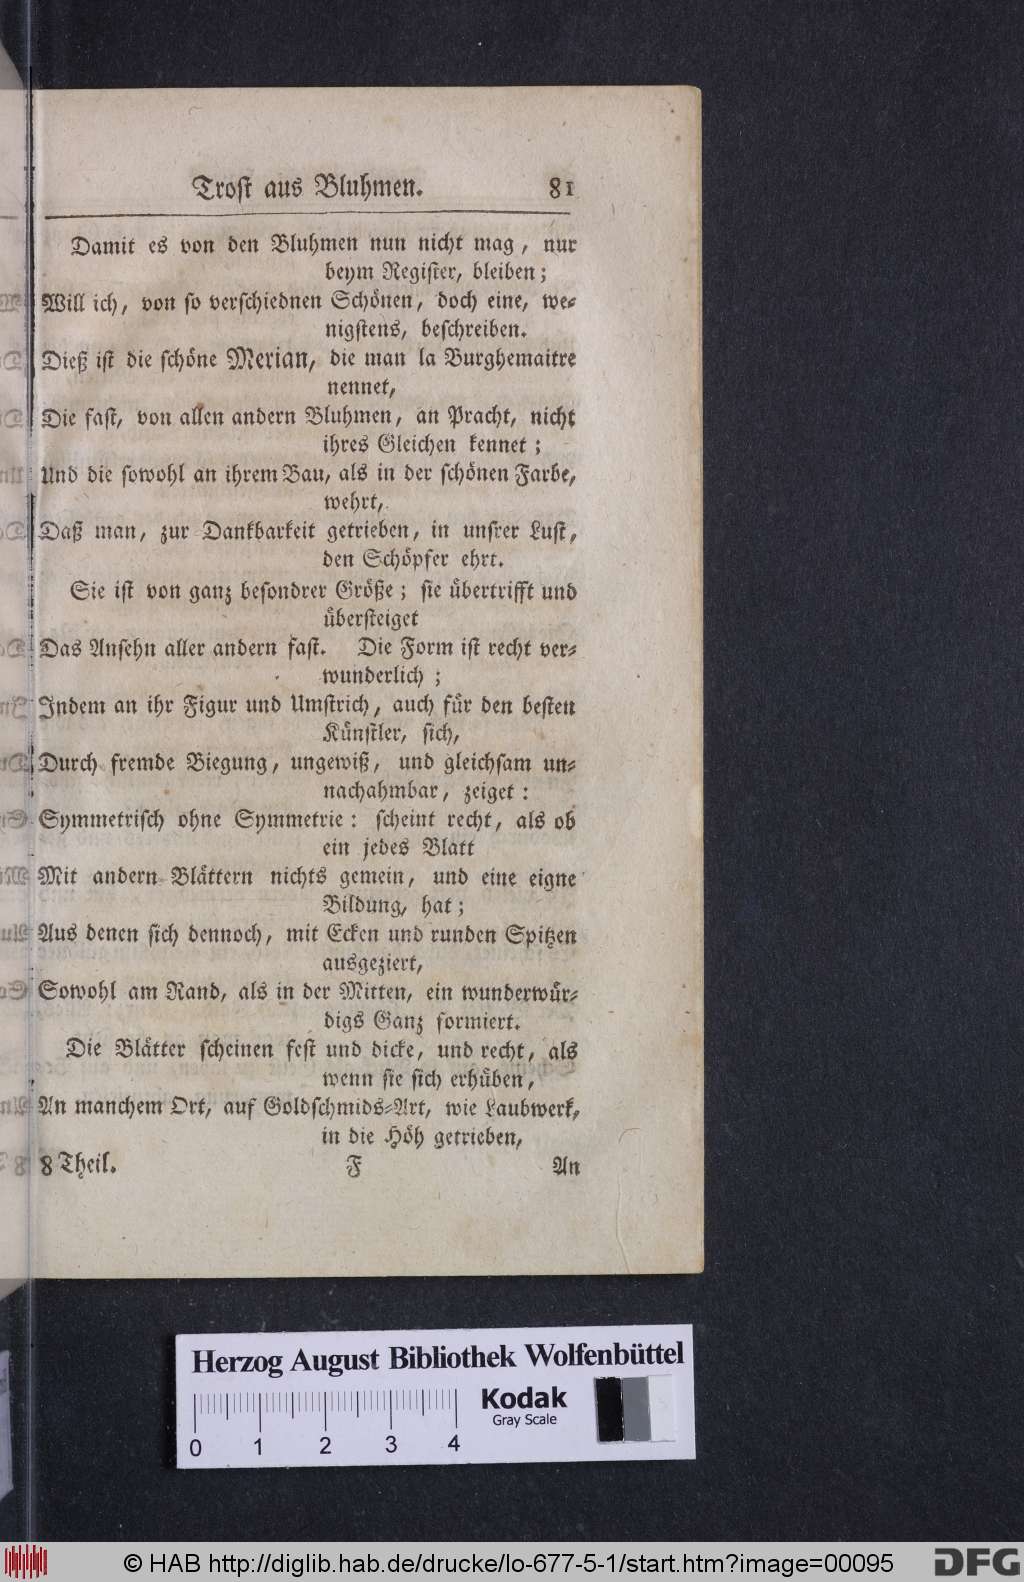 Trost aus Bluhmen. 81
Damit es von den Bluhmen nun nicht mag, nur
beym Register, bleiben;
Will ich, von so verschiednen Schönen, doch eine, we-
nigstens, beschreiben.
Dieß ist die schöne Merian, die man la Burghemaitre
nennet,
Die fast, von allen andern Bluhmen, an Pracht, nicht
ihres Gleichen kennet;
Und die sowohl an ihrem Bau, als in der schönen Farbe,
wehrt,
Daß man, zur Dankbarkeit getrieben, in unsrer Lust,
den Schöpfer ehrt.
Sie ist von ganz besondrer Größe; sie übertrifft und
übersteiget
Das Ansehn aller andern fast. Die Form ist recht ver-
wunderlich;
Indem an ihr Figur und Umstrich, auch für den besten
Künstler, sich,
Durch fremde Biegung, ungewiß, und gleichsam un-
nachahmbar, zeiget:
Symmetrisch ohne Symmetrie: scheint recht, als ob
ein jedes Blatt
Mit andern Blättern nichts gemein, und eine eigne
Bildung, hat;
Aus denen sich dennoch, mit Ecken und runden Spitzen
ausgeziert,
Sowohl am Rand, als in der Mitten, ein wunderwür-
digs Ganz formiert.
Die Blätter scheinen fest und dicke, und recht, als
wenn sie sich erhüben,
An manchem Ort, auf Goldschmids-Art, wie Laubwerk,
in die Höh getrieben,
8 Theil. F An
Herzog August Bibliothek Wolfenbüttel
Kodak
Gray Scale
0 1 2 3 4
© HAB http://diglib.hab.de/drucke/lo-677-5-1/start.htm?image=00095
DFG